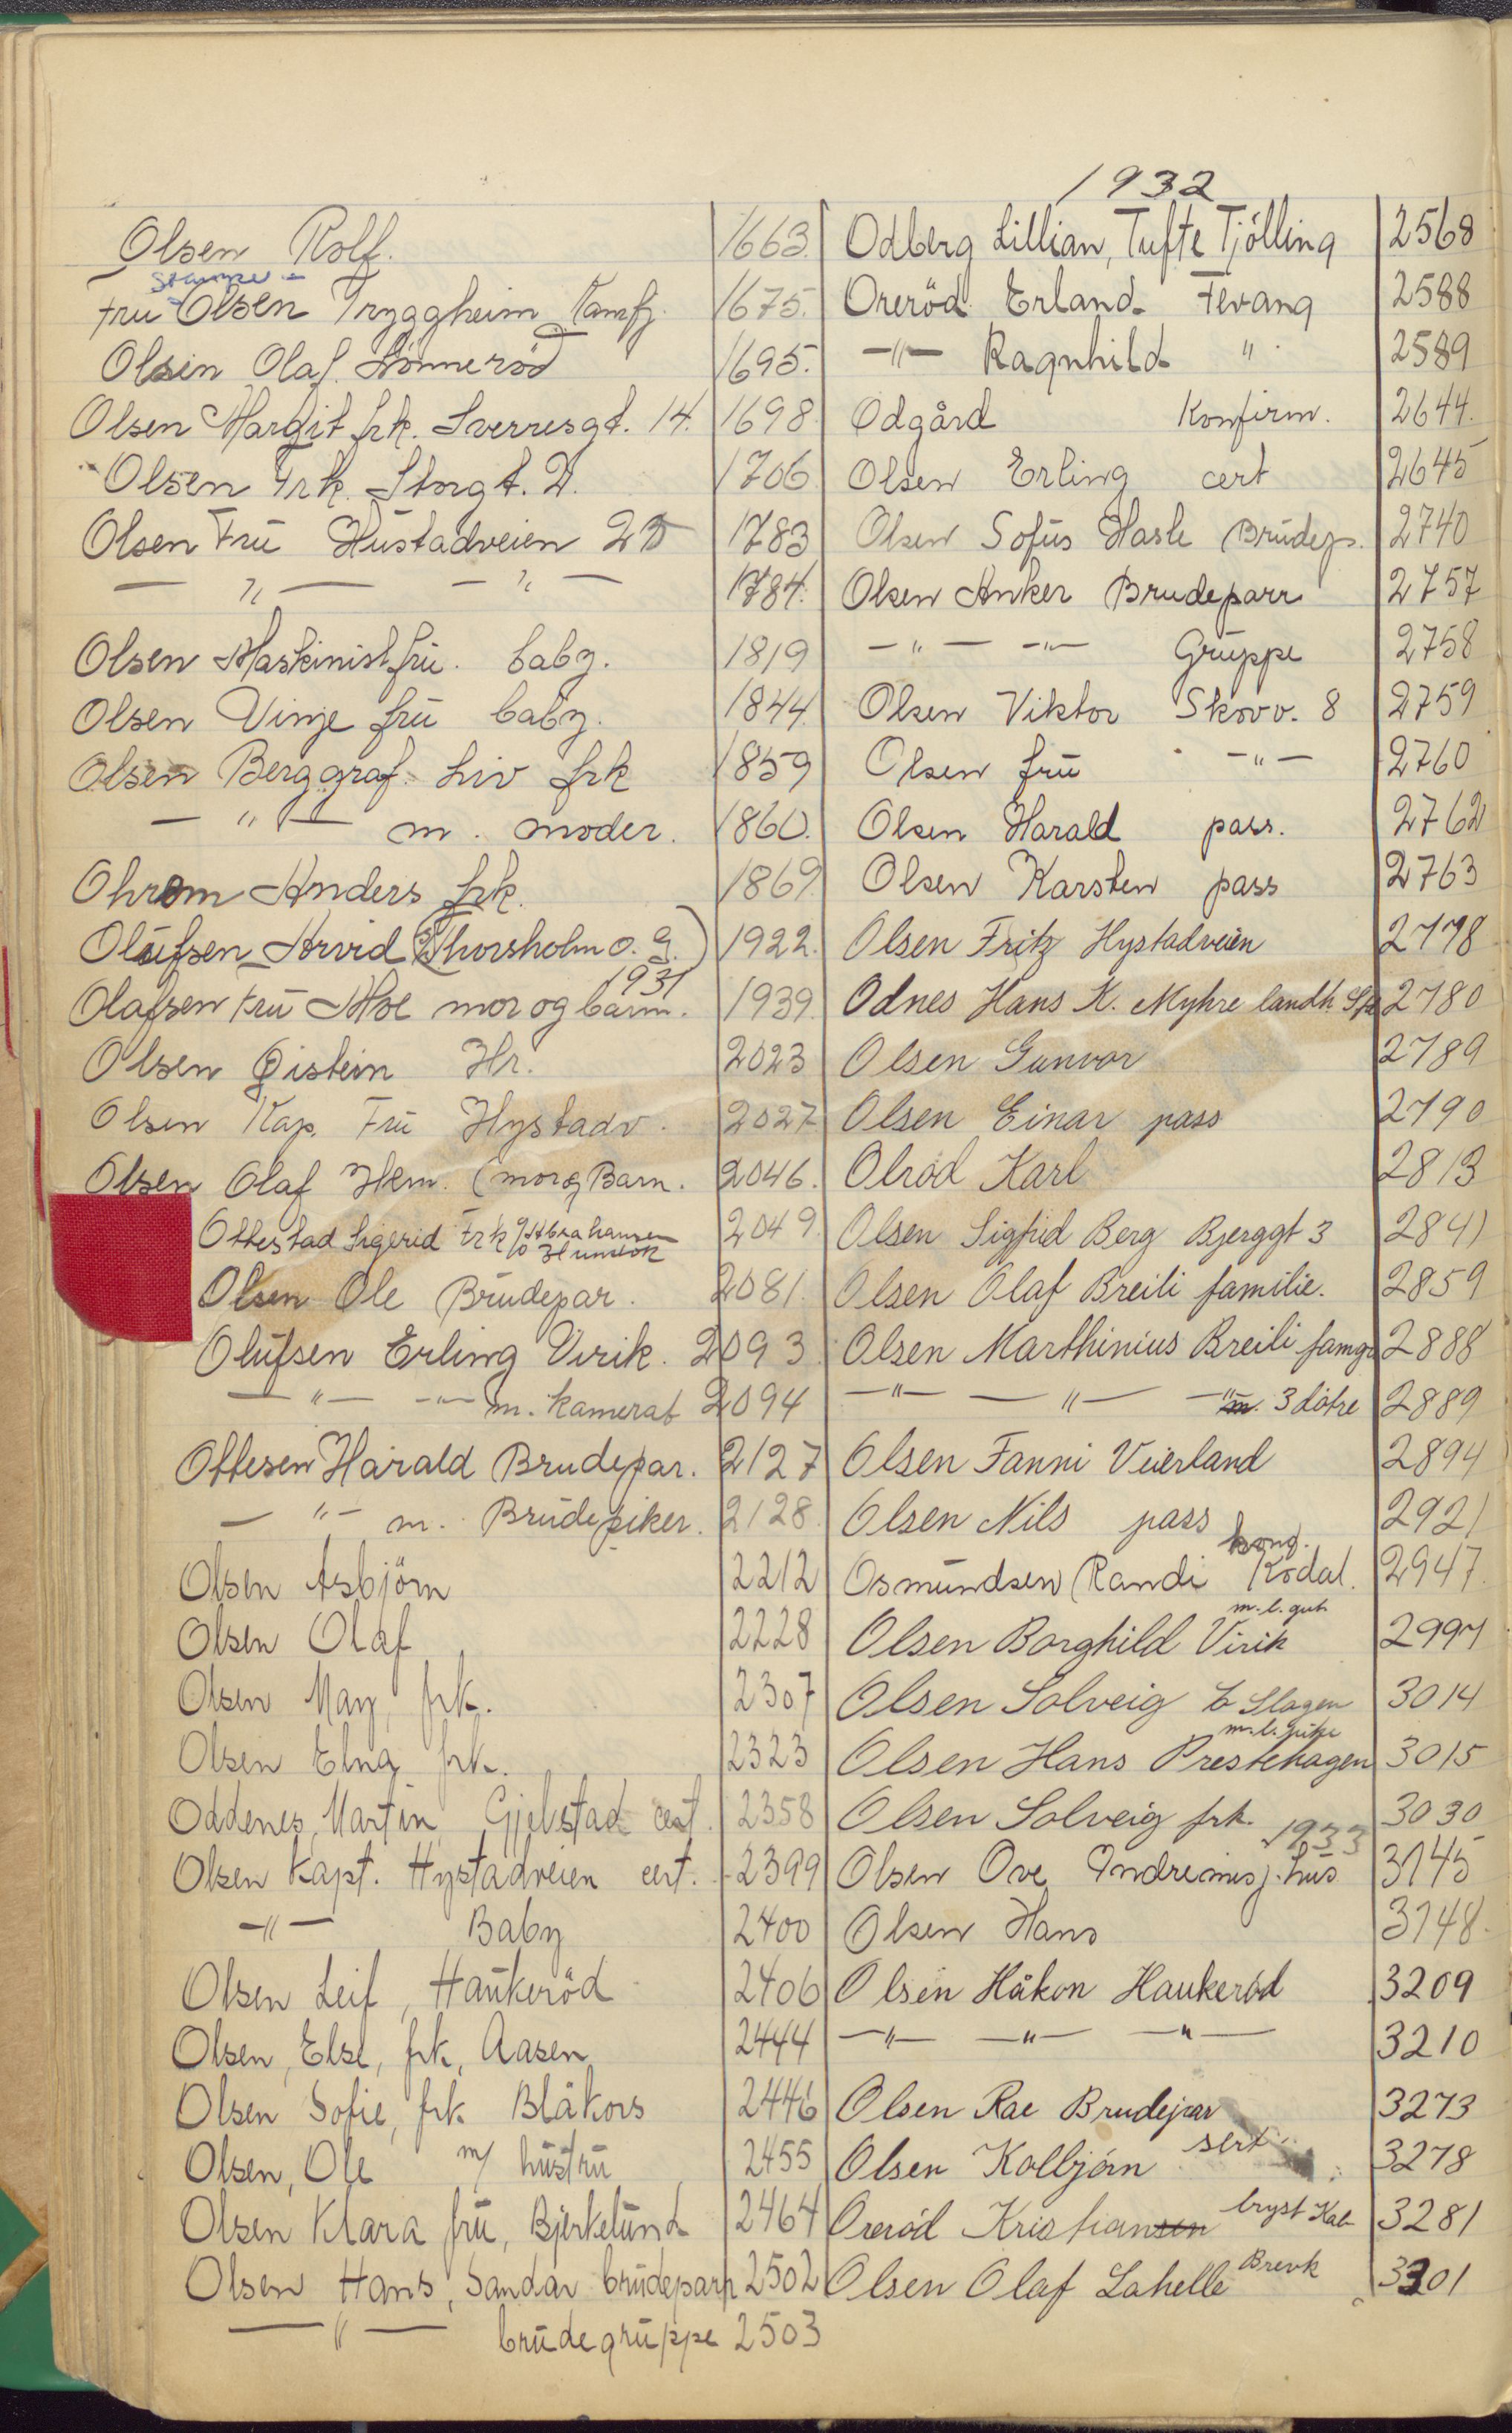 Olsen Rolf. 1663.
Fru Olsen Tryggheim Kamfj. 1675.
Olsen Olaf Lønnerød 1695.
Olsen Margit frk. Sverresgt. 14. 1698.
Olsen Frk. Storgt. 1706
Olsen Frü Hüstadveien 1783
— " — — " — 1784.
Olsen Maskinist frü. baby. 1819
Olsen Vinje frü baby. 1844.
Olsen Berggraf Liv frk 1859
— " — m. moder. 1860.
Ohrom Anders frk. 1869.
Olüfsen Arvid (Thorsholm o. G.) 1922.
1931
Olafsen Frü Moe mor og barn. 1939.
Olsen Øistein Hr. 2023
Olsen Kap. Frü Hystadv. 2027
Olsen Olaf Hem. (mor og Barn. 2046.
Ottestad Sigerid Frk c/o Abrahamsen 2049.
Olsen Ole Brüdepar. 2081.
Olüfsen Erling Virik. 2093
— " — — " — m. kamerat 2094
Ottesen Harald Brudepar. 2127
— " — m. Brüdepiker. 2128.
Olsen Asbjörn 2212
Olsen Olaf 2228
Olsen May, frk. 2307
Olsen Elna frk. 2323
Oddenes, Martin Gjelstad cert. 2358
Olsen Kapt. Hystadveien cert. 2399
— " — Baby 2400
Olsen Leif, Haükeröd 2406
Olsen, Else, frk, Aasen 2444
Olsen Sofie, frk Blåkors 2446
Olsen, Ole m/ hüstrü 2455
Olsen Klara frü, Bjerkelünd 2464
Olsen Hans, Sandar brüdeparr 2502
— " — brüdegrüppe 2503
1932
Odberg Lillian, Tufte Tjölling 2568
Oreröd Erland Fevang 2588
— " — Ragnhild " 2589
Odgård Konfirm. 2644.
Olsen Erling cert 2645
Olsen Sofüs Hasle Brüdep. 2740
Olsen Anker Brudeparr 2757
— " — — " — Grüppe 2758
Olsen Viktor Skovv. 8 2759
Olsen frü — " — 2760
Olsen Harald pass. 2762
Olsen Karsten pass 2763
Olsen Fritz Hystadveien 2778
Odnes Hans K. Myhre landh. 2780
Olsen Gunvor 2789
Olsen Einar pass 2790
Olrød Karl 2813
Olsen Sigfrid Berg Bjerggt 3 2841
Olsen Olaf Breili familie. 2859
Olsen Marthinius Breili 2888
— " — — " — — " — m. 3 døtre 2889
Olsen Fanni Veierland 2894
Olsen Nils pass 2921
Osmundsen Randi Kodal. 2947.
m. l. gut
Olsen Borghild Virik 2997
Olsen Solveig Slagen 3014
m. l. pike
Olsen Hans Prestehagen 3015
Olsen Solveig frk. 3030
1933
Olsen Ove Indremisj. hüs 3145
Olsen Hans 3148.
Olsen Håkon Haukerød 3209
— " — — " — — " — 3210
Olsen Rae Brudepar 3273
Olsen Kolbjørn sert. 3278
Orerød Kristiansen bryst Kab 3281
Olsen Olaf Lahelle Brevk 3301